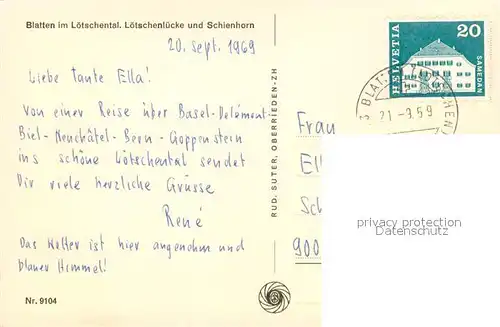 Blatten im Lötschental. Lötschenlücke und Schienhorn
20. Sept. 1969
Liebe Tante Ella!
Von einer Reise über Basel-Delémont
Biel-Neuchâtel-Bern-Goppenstein
ins schöne Lötschental sendet
Dir viele herzliche Grüsse
René
Das Wetter ist hier angenehm und
blauer Himmel!
Nr. 9104
RUD. SUTER, OBERRIEDEN-ZH
HELVETIA
20
SAMEDAN
Frau
Ell
Sch
900
privacy protection
Datenschutz